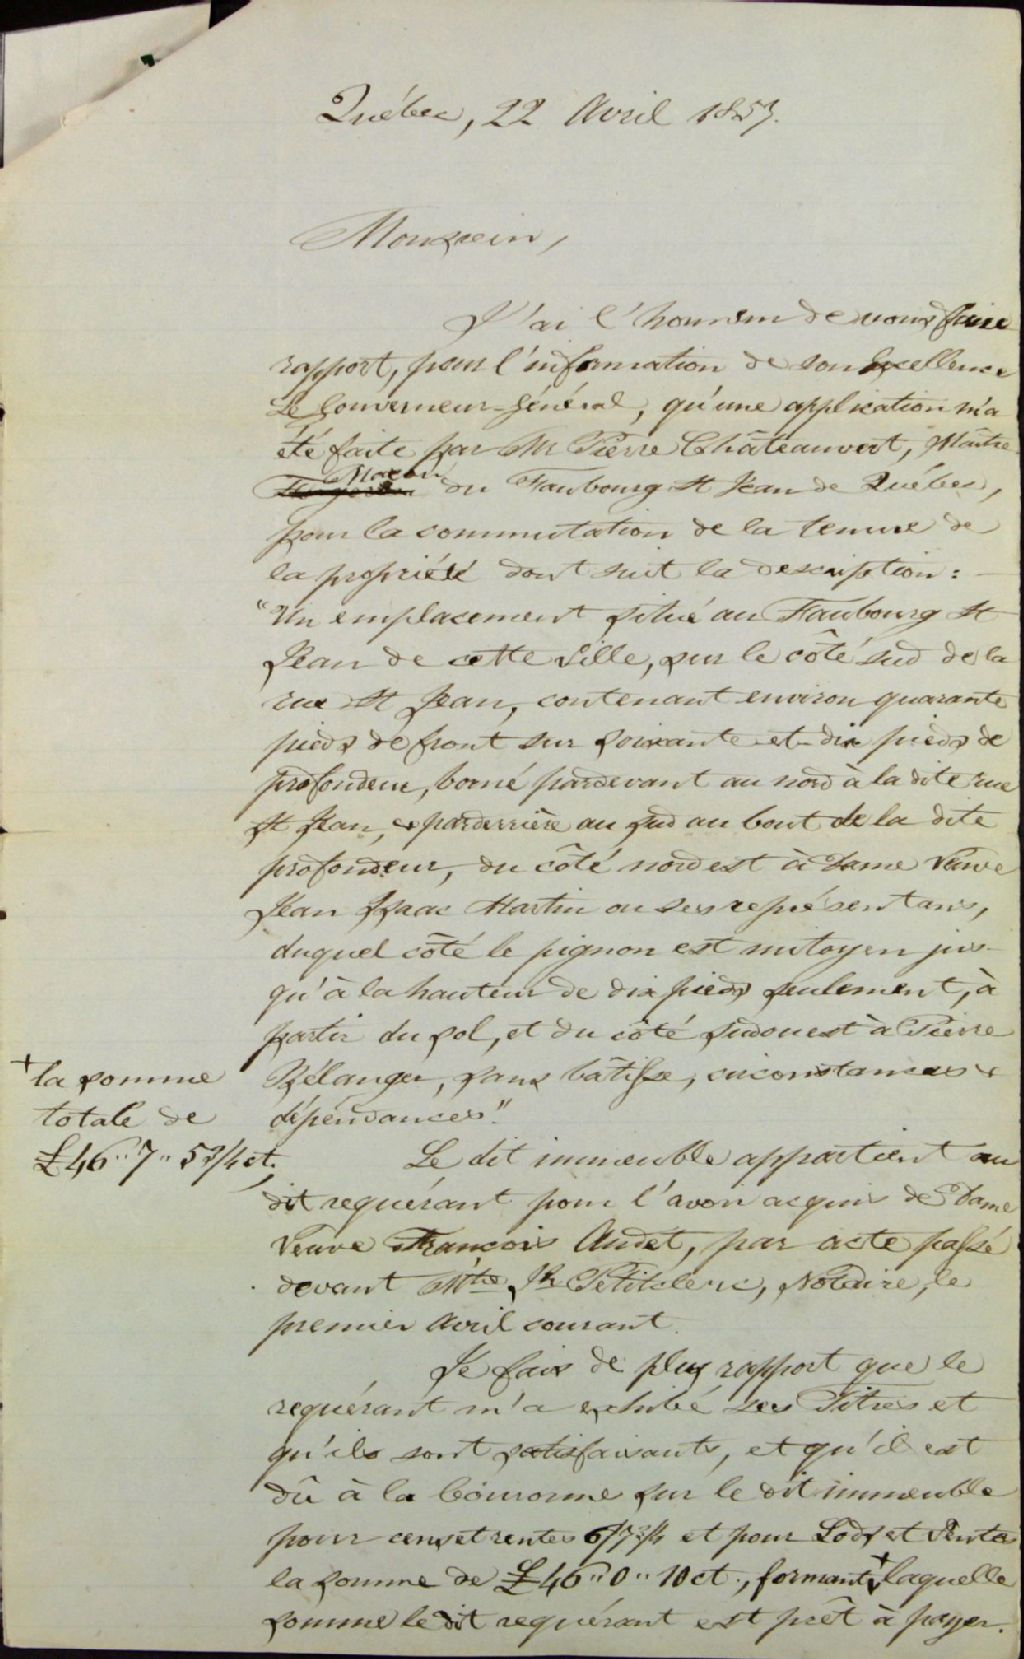 Québec, 22 Avril 1857.
Monsieur,
J'ai l'honneur de vous faire
rapport, pour l'information de son Excellence
Le Gouverneur-Général, qu'une application m'a
été faite par Mr Pierre Châteauvert, Maître
Maçon du Faubourg St Jean de Québec,
pour la commutation de la tenure de
la propriété dont suit la description:
"Un emplacement situé au Faubourg St
Jean de cette Ville, sur le côté sud de la
rue St Jean, contenant environ quarante
pieds de front sur soixante et dix pieds de
profondeur, borné pardevant au nord à la dite rue
St Jean, et parderrière au sud au bout de la dite
profondeur, du côté nord est à Dame Veuve
Jean Isaac Martin ou ses représentans,
duquel côté le pignon est mitoyen jus-
qu'à la hauteur de dix pieds seulement, à
partir du sol, et du côté sudouest à Pierre
Bélanger, sans bâtisse, circonstances &
dépendances".
+ la somme
totale de
£46"7"5¾ ct.,
Le dit immeuble appartient au
dit requérant pour l'avoir acquis de Dame
Veuve François Audet, par acte passé
devant Mtre Jh Petitclerc, Notaire, le
premier Avril courant.
Je fais de plus rapport que le
requérant m'a exhibé ses Titres et
qu'ils sont satisfaisants, et qu'il est
dû à la Couronne sur le dit immeuble
pour cens et rentes 6/7¾ et pour Lods et Ventes
la somme de £46"0"10 ct., formant + laquelle
somme le dit requérant est prêt à payer.